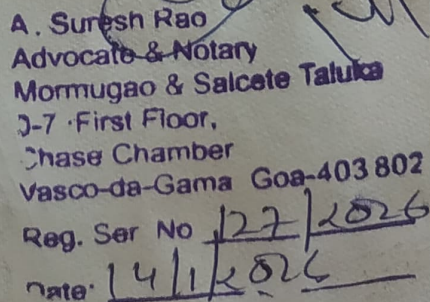 A. Suresh Rao
Advocate & Notary
Mormugao & Salcete Taluka
D-7 First Floor,
Chase Chamber
Vasco-da-Gama Goa-403 802
Reg. Ser No 127/2026
Date: 14/1/2026